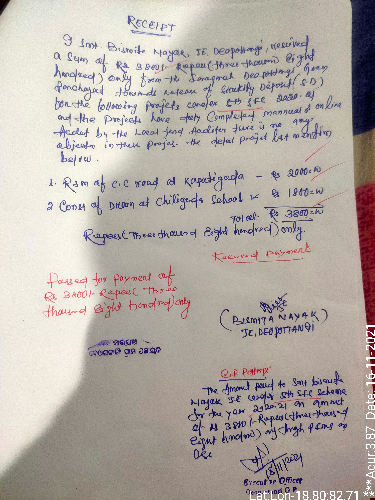 RECEIPT
I Smt Bismita Nayak, JE, Deopottangi, received
a sum of Rs 3800/- Rupees (three thousand Eight
hundred) only from the Deopottangi Gram
Panchayat towards release of Security Deposit (SD)
for the following projects under 5th SFC 2020-21
and the Projects have completed manual & online
Audit by the Local fund Auditor there is no any
objection in these projects. The detail project list mention
below.
1. R&m of C.C road at Kapatiguda - Rs 2000=00
2 Const of Drain at Chiliguda School Rs 1800=00
Total - Rs 3800=00
Rupees (Three thousand Eight hundred) only.
Received payment
Passed for payment of
Rs 3800/- Rupees (Three
thousand Eight hundred) only
(BISMITA NAYAK)
JE, DEOPOTTANGI
The Amount paid to Smt Bismita
Nayak JE under 5th SFC Scheme
for the year 2020-21 an amount
of Rs 3800/- Rupees (Three thousand
Eight hundred) only
18/11/2021
Executive Officer
***Acur 3.87 Date. 16-11-2021
on-18.80:82.71 ***